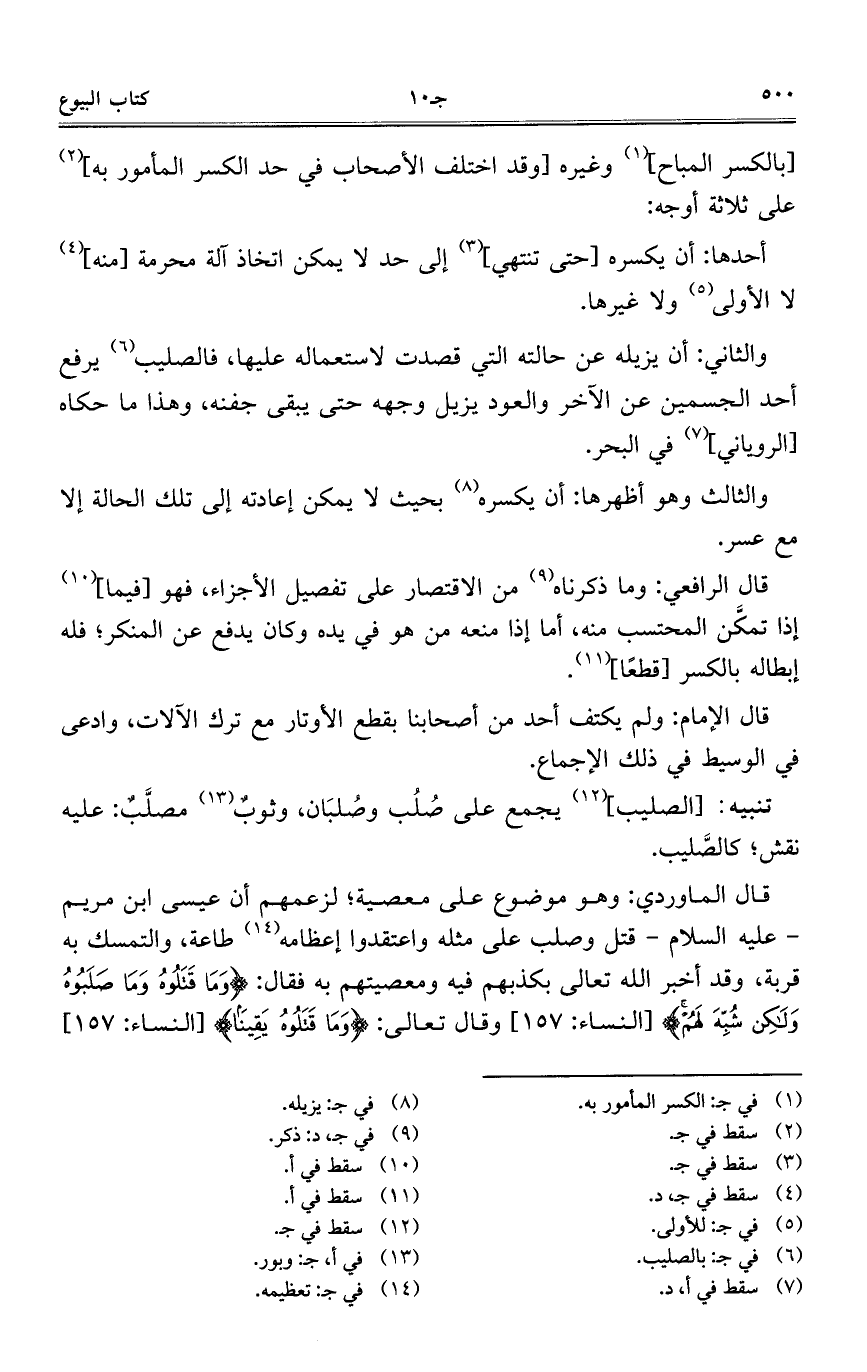 ٥٠٠ جـ١٠ كتاب البيوع
[بالكسر المباح](١) وغيره [وقد اختلف الأصحاب في حد الكسر المأمور به](٢)
على ثلاثة أوجه:
أحدها: أن يكسره [حتى تنتهي](٣) إلى حد لا يمكن اتخاذ آلة محرمة [منه](٤)
لا الأولى(٥) ولا غيرها.
والثاني: أن يزيله عن حالته التي قصدت لاستعماله عليها، فالصليب(٦) يرفع
أحد الجسمين عن الآخر والعود يزيل وجهه حتى يبقى جفنه، وهذا ما حكاه
[الروياني](٧) في البحر.
والثالث وهو أظهرها: أن يكسره(٨) بحيث لا يمكن إعادته إلى تلك الحالة إلا
مع عسر.
قال الرافعي: وما ذكرناه(٩) من الاقتصار على تفصيل الأجزاء، فهو [فيما](١٠)
إذا تمكَّن المحتسب منه، أما إذا منعه من هو في يده وكان يدفع عن المنكر؛ فله
إبطاله بالكسر [قطعًا](١١).
قال الإمام: ولم يكتف أحد من أصحابنا بقطع الأوتار مع ترك الآلات، وادعى
في الوسيط في ذلك الإجماع.
تنبيه: [الصليب](١٢) يجمع على صُلُب وصُلبَان، وثوبٌ(١٣) مصلَّبٌ: عليه
نقش؛ كالصَّليب.
قال الماوردي: وهو موضوع على معصية؛ لزعمهم أن عيسى ابن مريم
- عليه السلام - قتل وصلب على مثله واعتقدوا إعظامه(١٤) طاعة، والتمسك به
قربة، وقد أخبر الله تعالى بكذبهم فيه ومعصيتهم به فقال: ﴿وَمَا قَتَلُوهُ وَمَا صَلَبُوهُ
وَلَٰكِن شُبِّهَ لَهُمْۚ﴾ [النساء: ١٥٧] وقال تعالى: ﴿وَمَا قَتَلُوهُ يَقِينًۢا﴾ [النساء: ١٥٧]
(١) في جـ: الكسر المأمور به.
(٢) سقط في جـ.
(٣) سقط في جـ.
(٤) سقط في جـ، د.
(٥) في جـ: للأولى.
(٦) في جـ: بالصليب.
(٧) سقط في أ، د.
(٨) في جـ: يزيله.
(٩) في جـ، د: ذكر.
(١٠) سقط في أ.
(١١) سقط في أ.
(١٢) سقط في جـ.
(١٣) في أ، جـ: وبور.
(١٤) في جـ: تعظيمه.